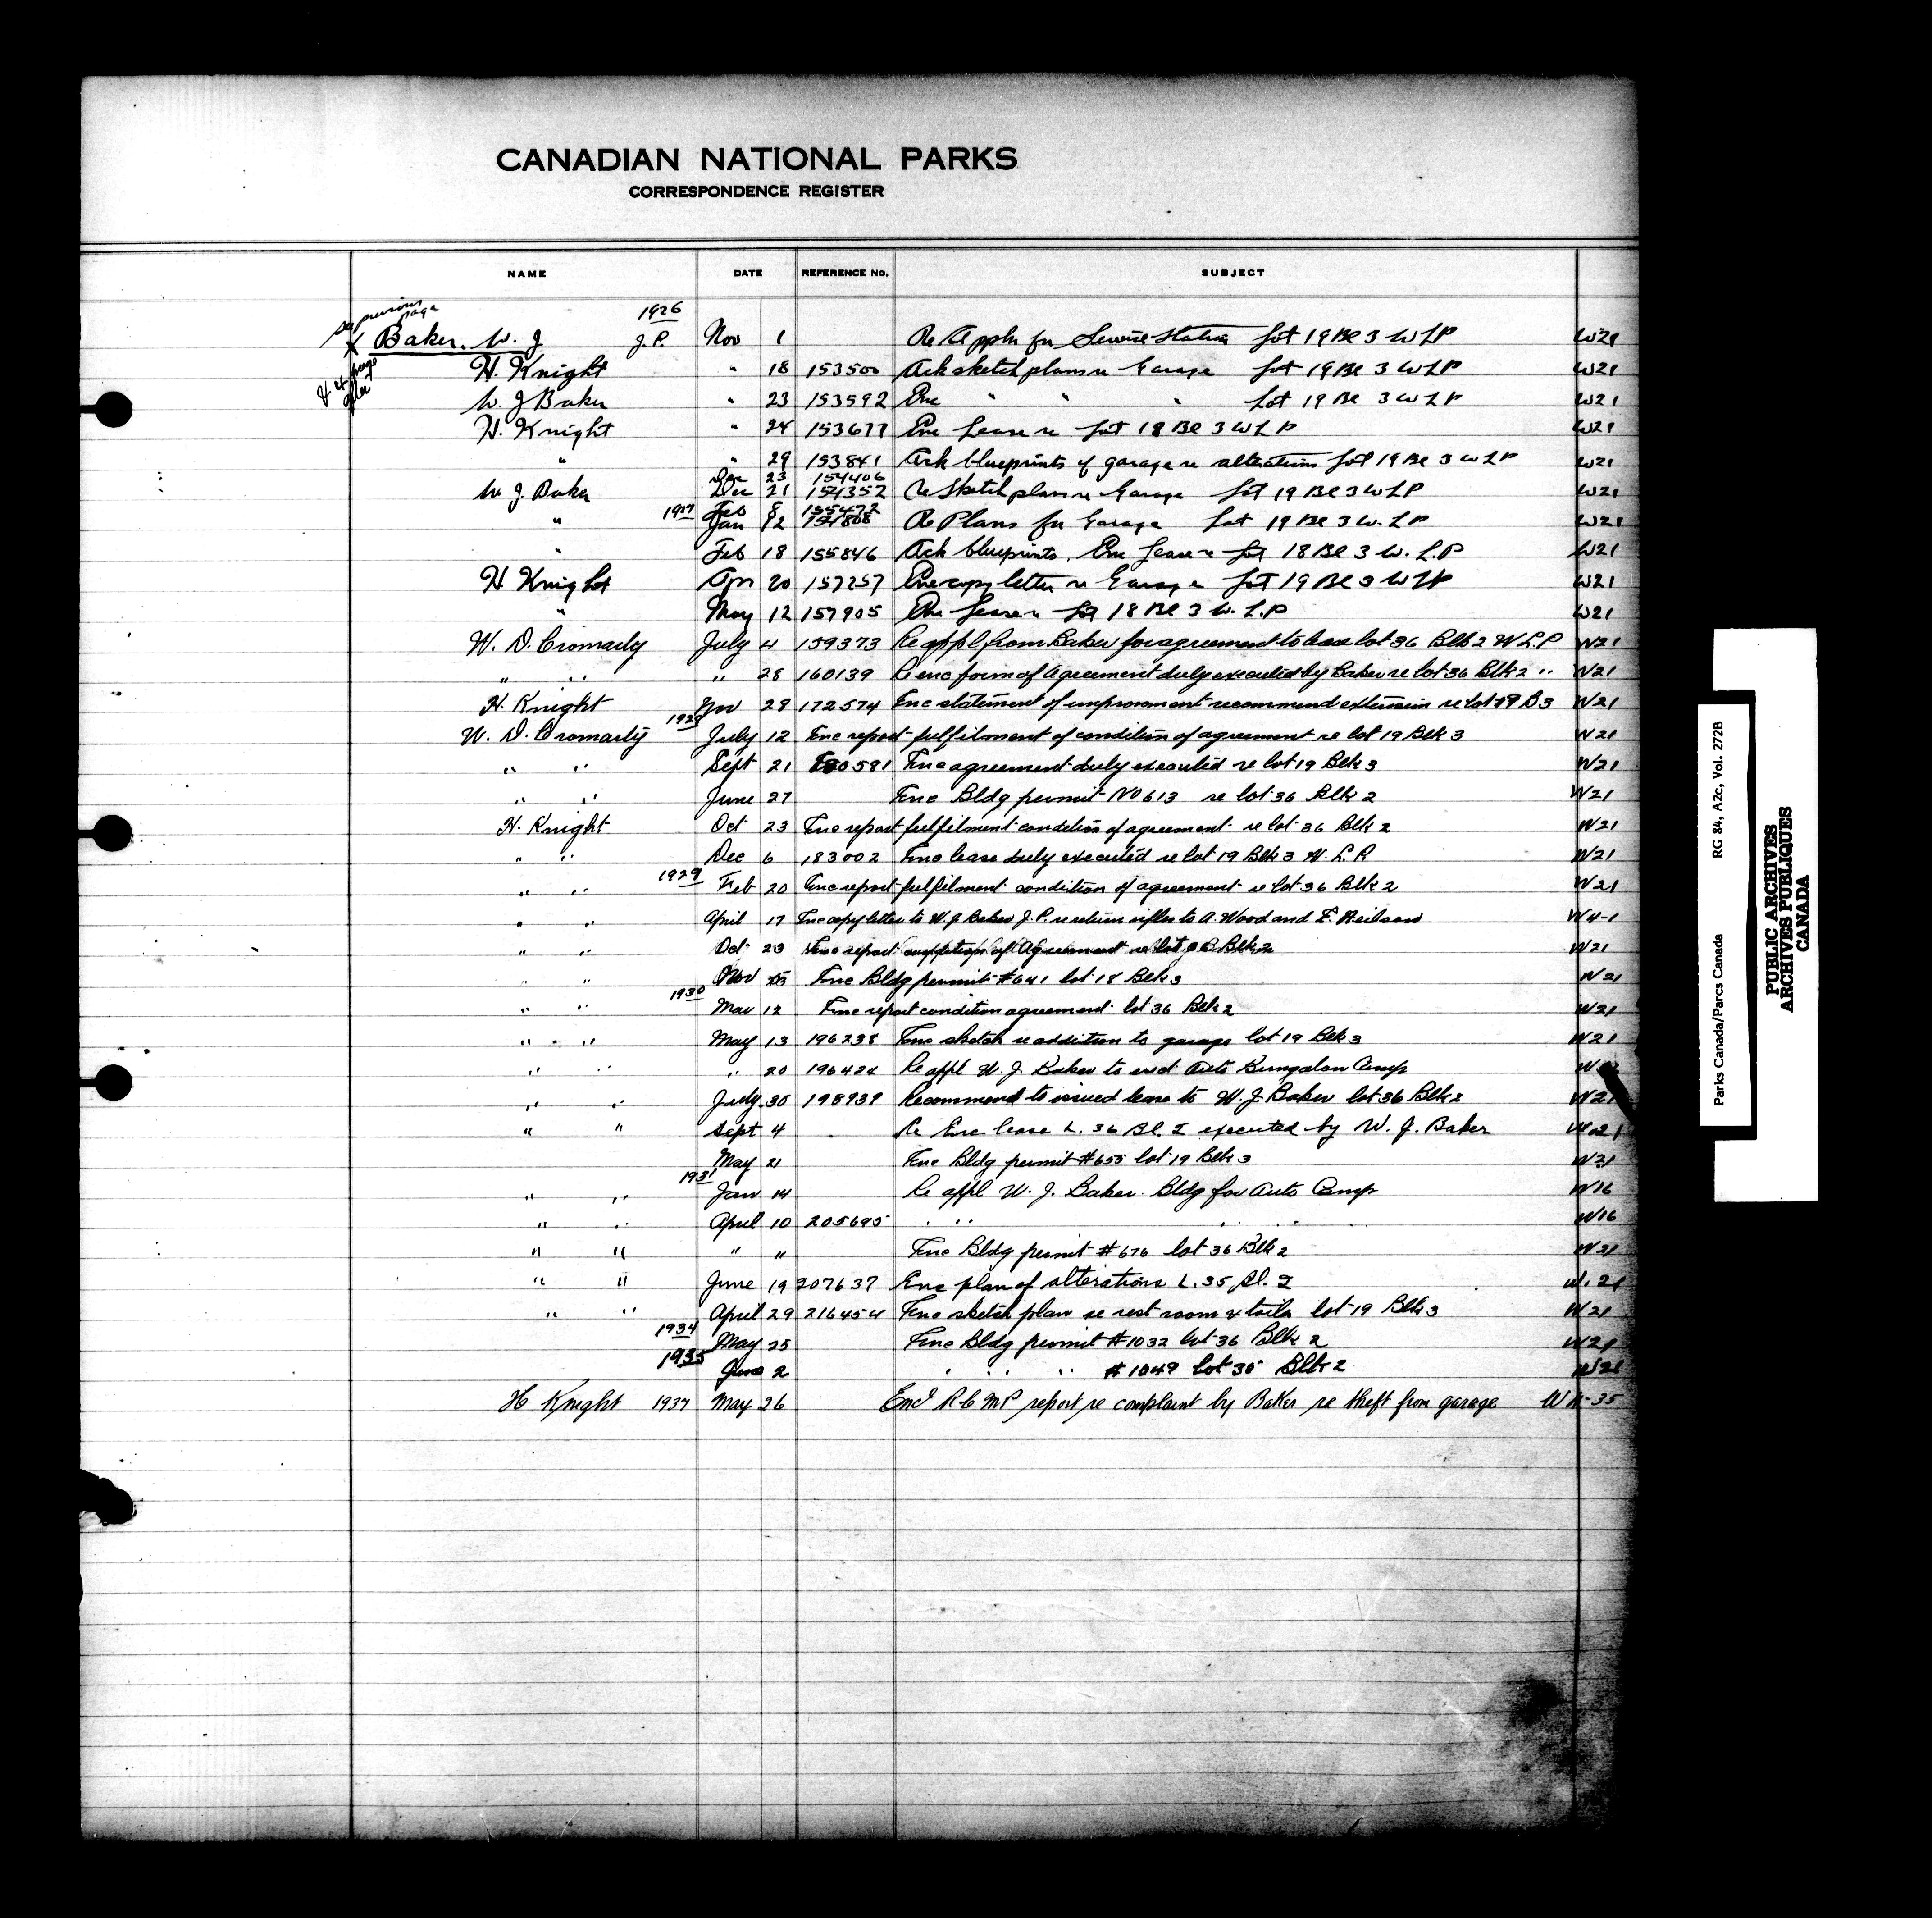 CANADIAN NATIONAL PARKS
CORRESPONDENCE REGISTER
NAME DATE REFERENCE No. SUBJECT
see previous page
1926
X Baker. W. J J.P. Nov 1 Re Appln for Service Station Lot 19 Bl 3 W L P W21
& page after
H. Knight " 18 153500 Ack sketch plans re Garage Lot 19 Bl 3 W L P W21
W. J Baker " 23 153592 Enc " " " Lot 19 Bl 3 W L P W21
H. Knight " 24 153677 Enc Lease re Lot 18 Bl 3 W L P W21
" " 29 153841 Ack blueprints of garage re alterations Lot 19 Bl 3 W L P W21
Dec 23 154406
W J. Baker Dec 21 154352 Re Sketch plans re Garage Lot 19 Bl 3 W L P W21
1927 Feb 8 155472
" Jan 12 154808 Re Plans for Garage Lot 19 Bl 3 W. L P W21
" Feb 18 155846 Ack blueprints. Enc Lease re Lot 18 Bl 3 W. L. P W21
H Knight Apr 20 157257 Enc copy letter re Garage Lot 19 Bl 3 W L P W21
" May 12 157905 Enc Lease re Lot 18 Bl 3 W. L. P W21
W. D. Cromarty July 4 159373 Re appl from Baker for agreement to lease lot 36 Blk 2 W L. P W21
" " " 28 160139 Re enc form of Agreement duly executed by Baker re lot 36 Blk 2 " W21
H. Knight Nov 28 172574 Enc statement of improvement recommend extension re lot 19 B 3 W21
1928
W. D. Cromarty July 12 Enc report fulfilment of condition of agreement re lot 19 Blk 3 W21
" " Sept 21 180581 Enc agreement duly executed re lot 19 Blk 3 W21
" " June 27 Enc Bldg permit No 613 re lot 36 Blk 2 W21
H. Knight Oct 23 Enc report fulfilment condition of agreement re lot 36 Blk 2 W21
" " Dec 6 183002 Enc lease duly executed re lot 19 Blk 3 W. L. P. W21
1929
" " Feb 20 Enc report fulfilment condition of agreement re lot 36 Blk 2 W21
" " April 17 Enc copy letter to W. J Baker J. P. re return rifles to A. Wood and E. Neilson W4-1
" " Oct 23 Enc report completion of Agreement re lot 36 Blk 2 W21
" " Nov 15 Enc Bldg permit #641 lot 18 Blk 3 W21
1930
" " Mar 12 Enc report condition agreement lot 36 Blk 2 W21
" " May 13 196238 Enc sketch re addition to garage lot 19 Blk 3 W21
" " " 20 196424 Re appl W. J. Baker to erect Auto Bungalow Camp
" " July 30 198939 Recommend to issued lease to W. J Baker lot 36 Blk 2 W21
" " Sept 4 Re Enc lease L. 36 Bl. 2 executed by W. J. Baker W21
May 21 Enc Bldg permit #655 lot 19 Blk 3 W21
1931
" " Jan 14 Re appl W. J. Baker. Bldg for Auto Camp W16
" " April 10 205695 " " " " W16
" " " " Enc Bldg permit #676 lot 36 Blk 2 W21
" " June 19 207637 Enc plan of alterations L. 35 Bl. 2 W. 21
" " April 29 216454 Enc sketch plan re rest room & toilet lot 19 Blk 3 W21
1934 May 25 Enc Bldg permit #1032 lot 36 Blk 2 W21
1935 June 2 " " " #1049 lot 35 Blk 2 W21
H Knight 1937 May 26 Encl R C M P report re complaint by Baker re theft from garage
Parks Canada/Parcs Canada RG 84, A2c, Vol. 272B
PUBLIC ARCHIVES
ARCHIVES PUBLIQUES
CANADA